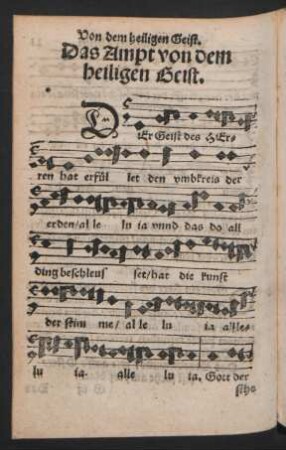 Von dem heiligen Geist.
Das Ampt von dem
heiligen Geist.
DEr Geist des HEr-
ren hat erfül let den vmbkreis der
erden/al le lu ia vnnd das do all
ding beschleus set/hat die kunst
der stim me/ al le lu ia alle-
lu ia. alle lu ia. Gott der